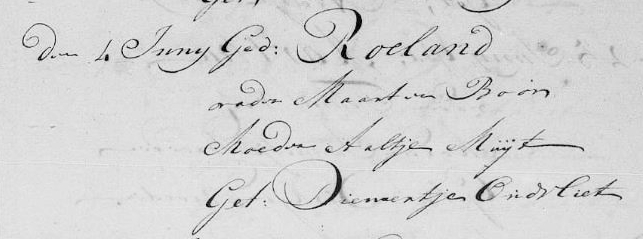 Den 4 Juny Ged: Roeland
vader Maarten Boon
Moeder Aaltje Muijt
Get: Diewertje Oudvliet